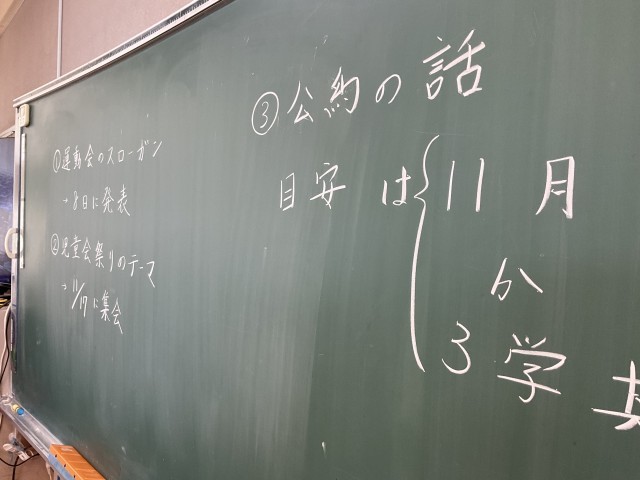 ①運動会のスローガン
→8日に発表
②児童会祭りのテーマ
→11/17に集会
③公約の話
目安は{11月
か
3学